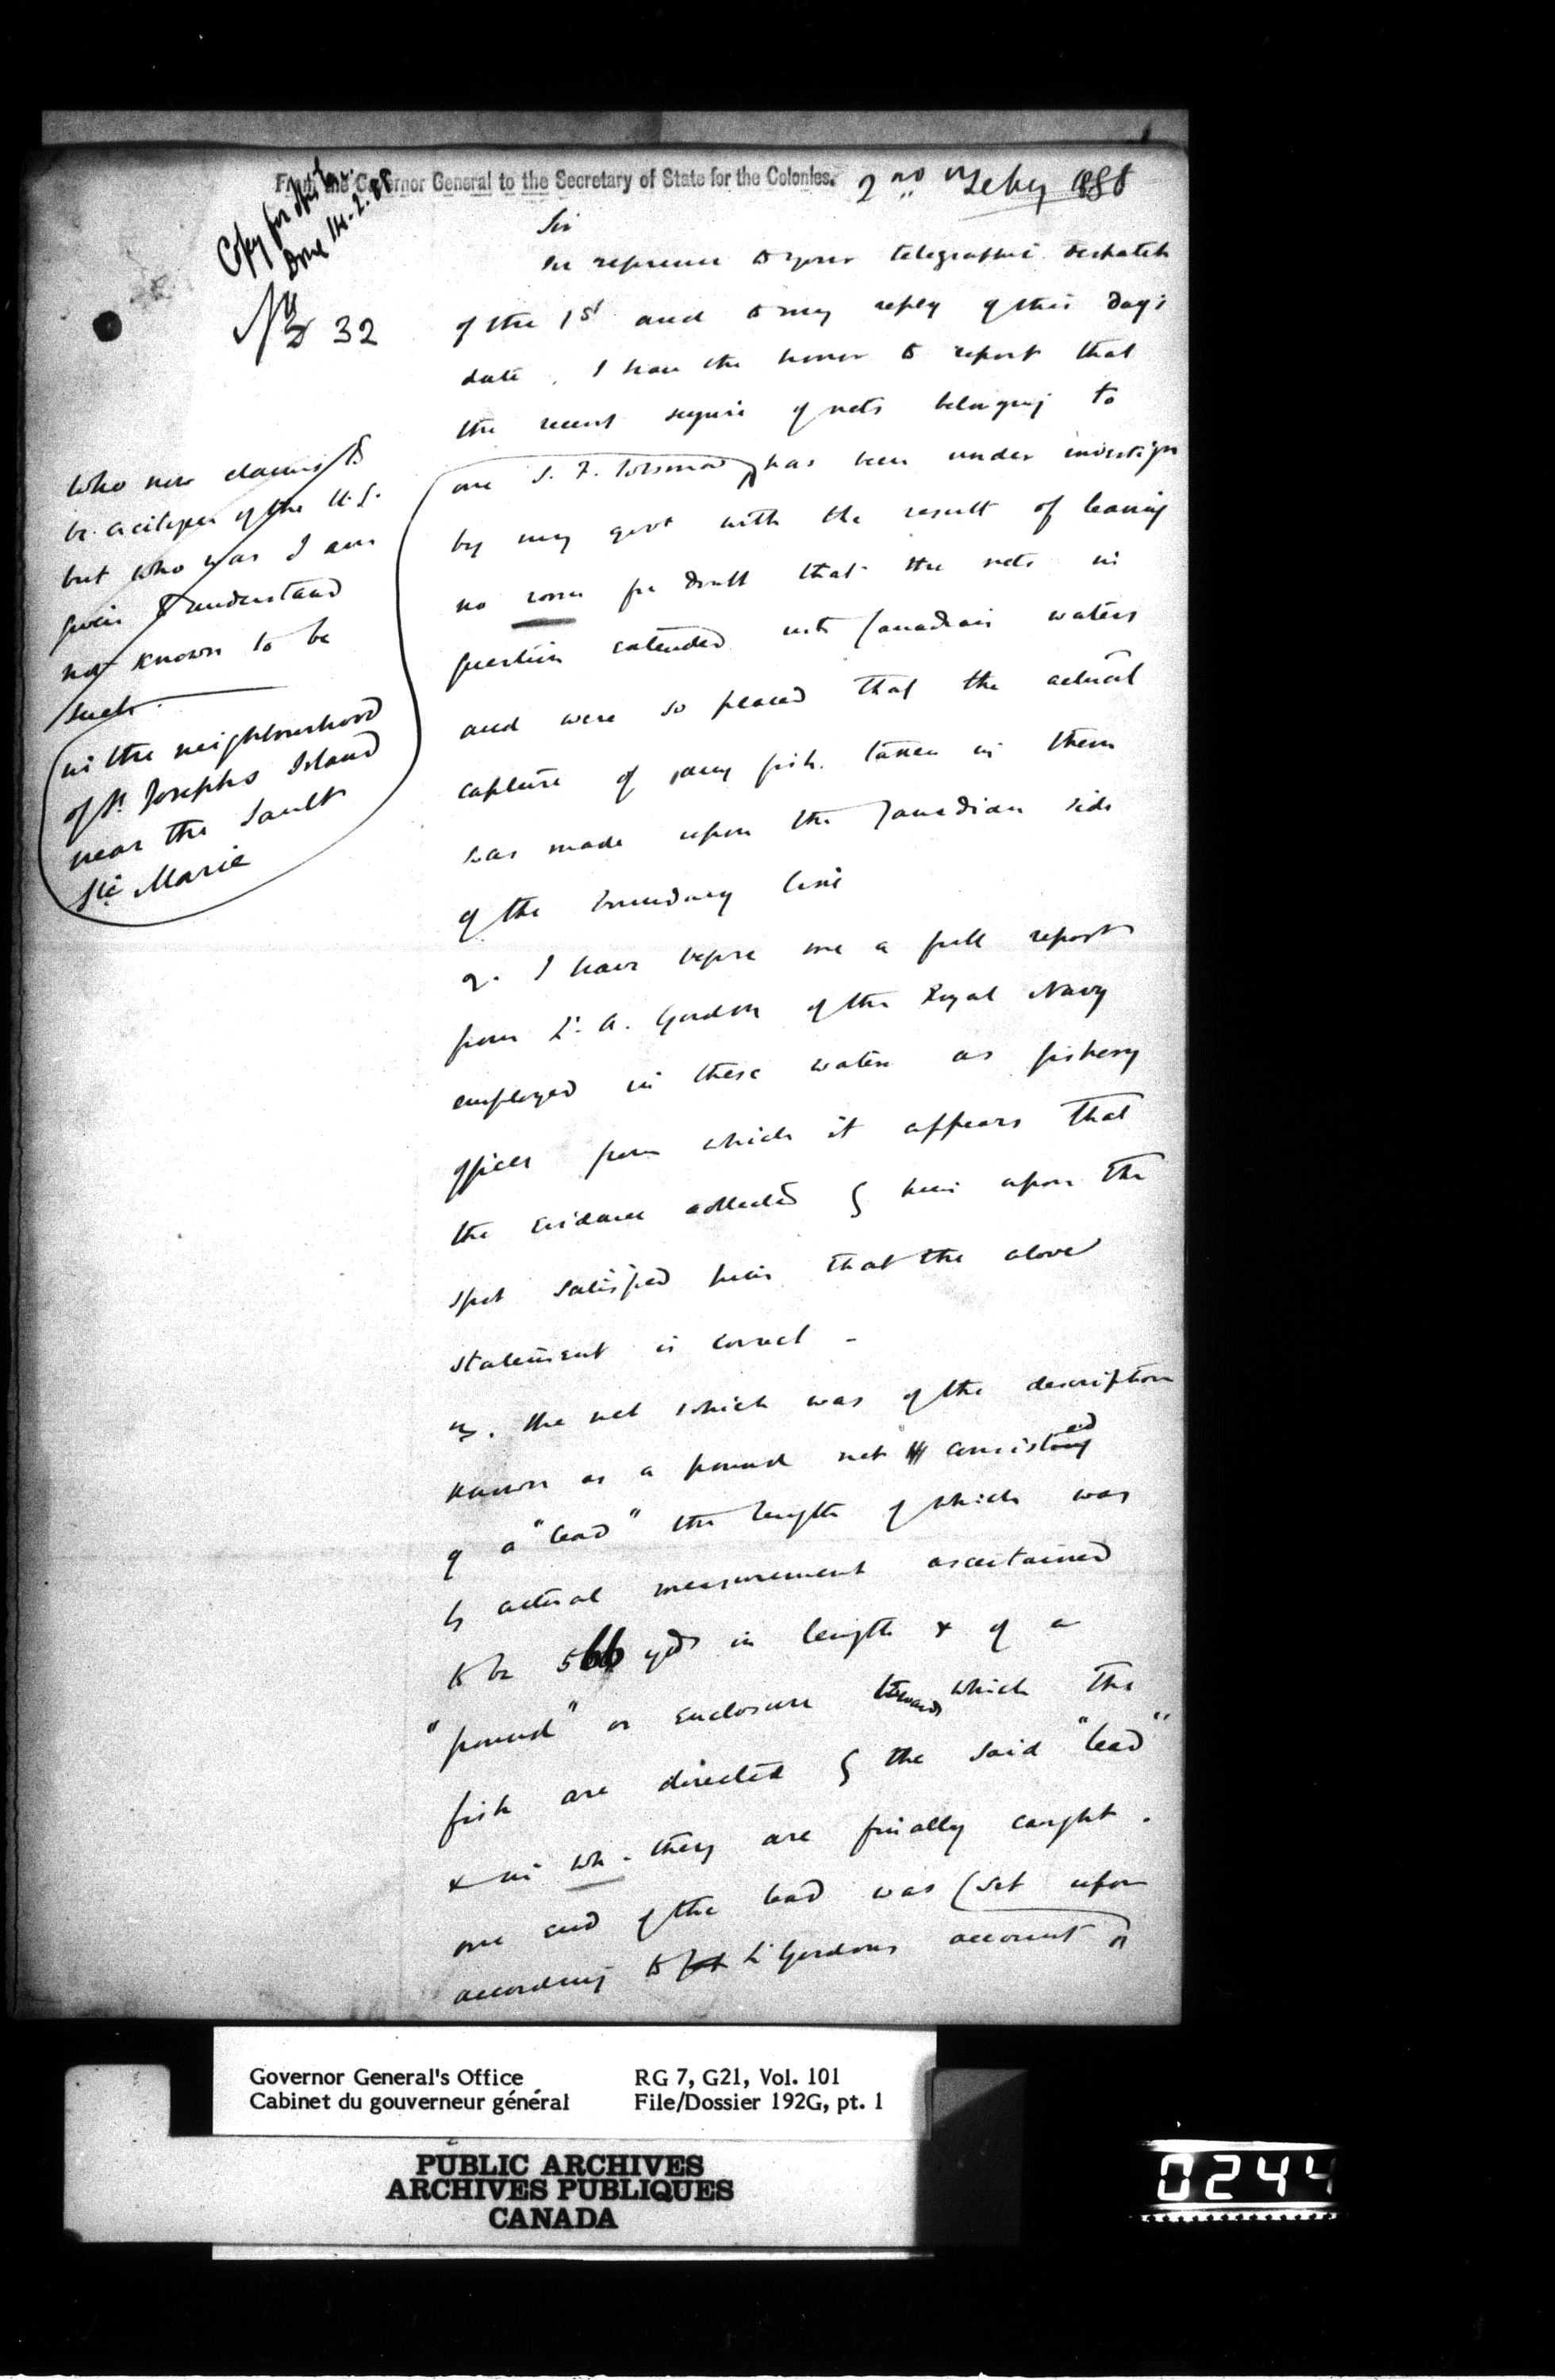 From the Governor General to the Secretary of State for the Colonies.
2nd Feby 1888
Copy for
Done 14.2.88
No 32
Sir
In reference to your telegraphic despatch
of the 1st and to my reply of this day's
date, I have the honor to report that
the recent seizure of nets belonging to
one J. F. has been under investign
by my govt with the result of leaving
no room for doubt that the nets in
question extended into Canadian waters
and were so placed that the actual
capture of many fish taken in them
was made upon the Canadian side
of the boundary line
who now claims to
be a citizen of the U.S.
but who was I am
given to understand
not known to be
such.
in the neighbourhood
of St Josephs Island
near the Sault
Ste Marie
2. I have before me a full report
from Lt. A. Gordon of the Royal Navy
employed in these waters as fishery
officer from which it appears that
the evidence collected by him upon the
spot satisfied him that the above
statement is correct -
3. The net which was of the description
known as a pound net consisted
of a "lead" the length of which was
by actual measurement ascertained
to be 566 yds in length & of a
"pound" or enclosure towards which the
fish are directed by the said "lead"
& in wh. they are finally caught.
one end of the lead was (set upon
according to Lt Gordons account on
Governor General's Office
Cabinet du gouverneur général
RG 7, G21, Vol. 101
File/Dossier 192G, pt. 1
PUBLIC ARCHIVES
ARCHIVES PUBLIQUES
CANADA
0244